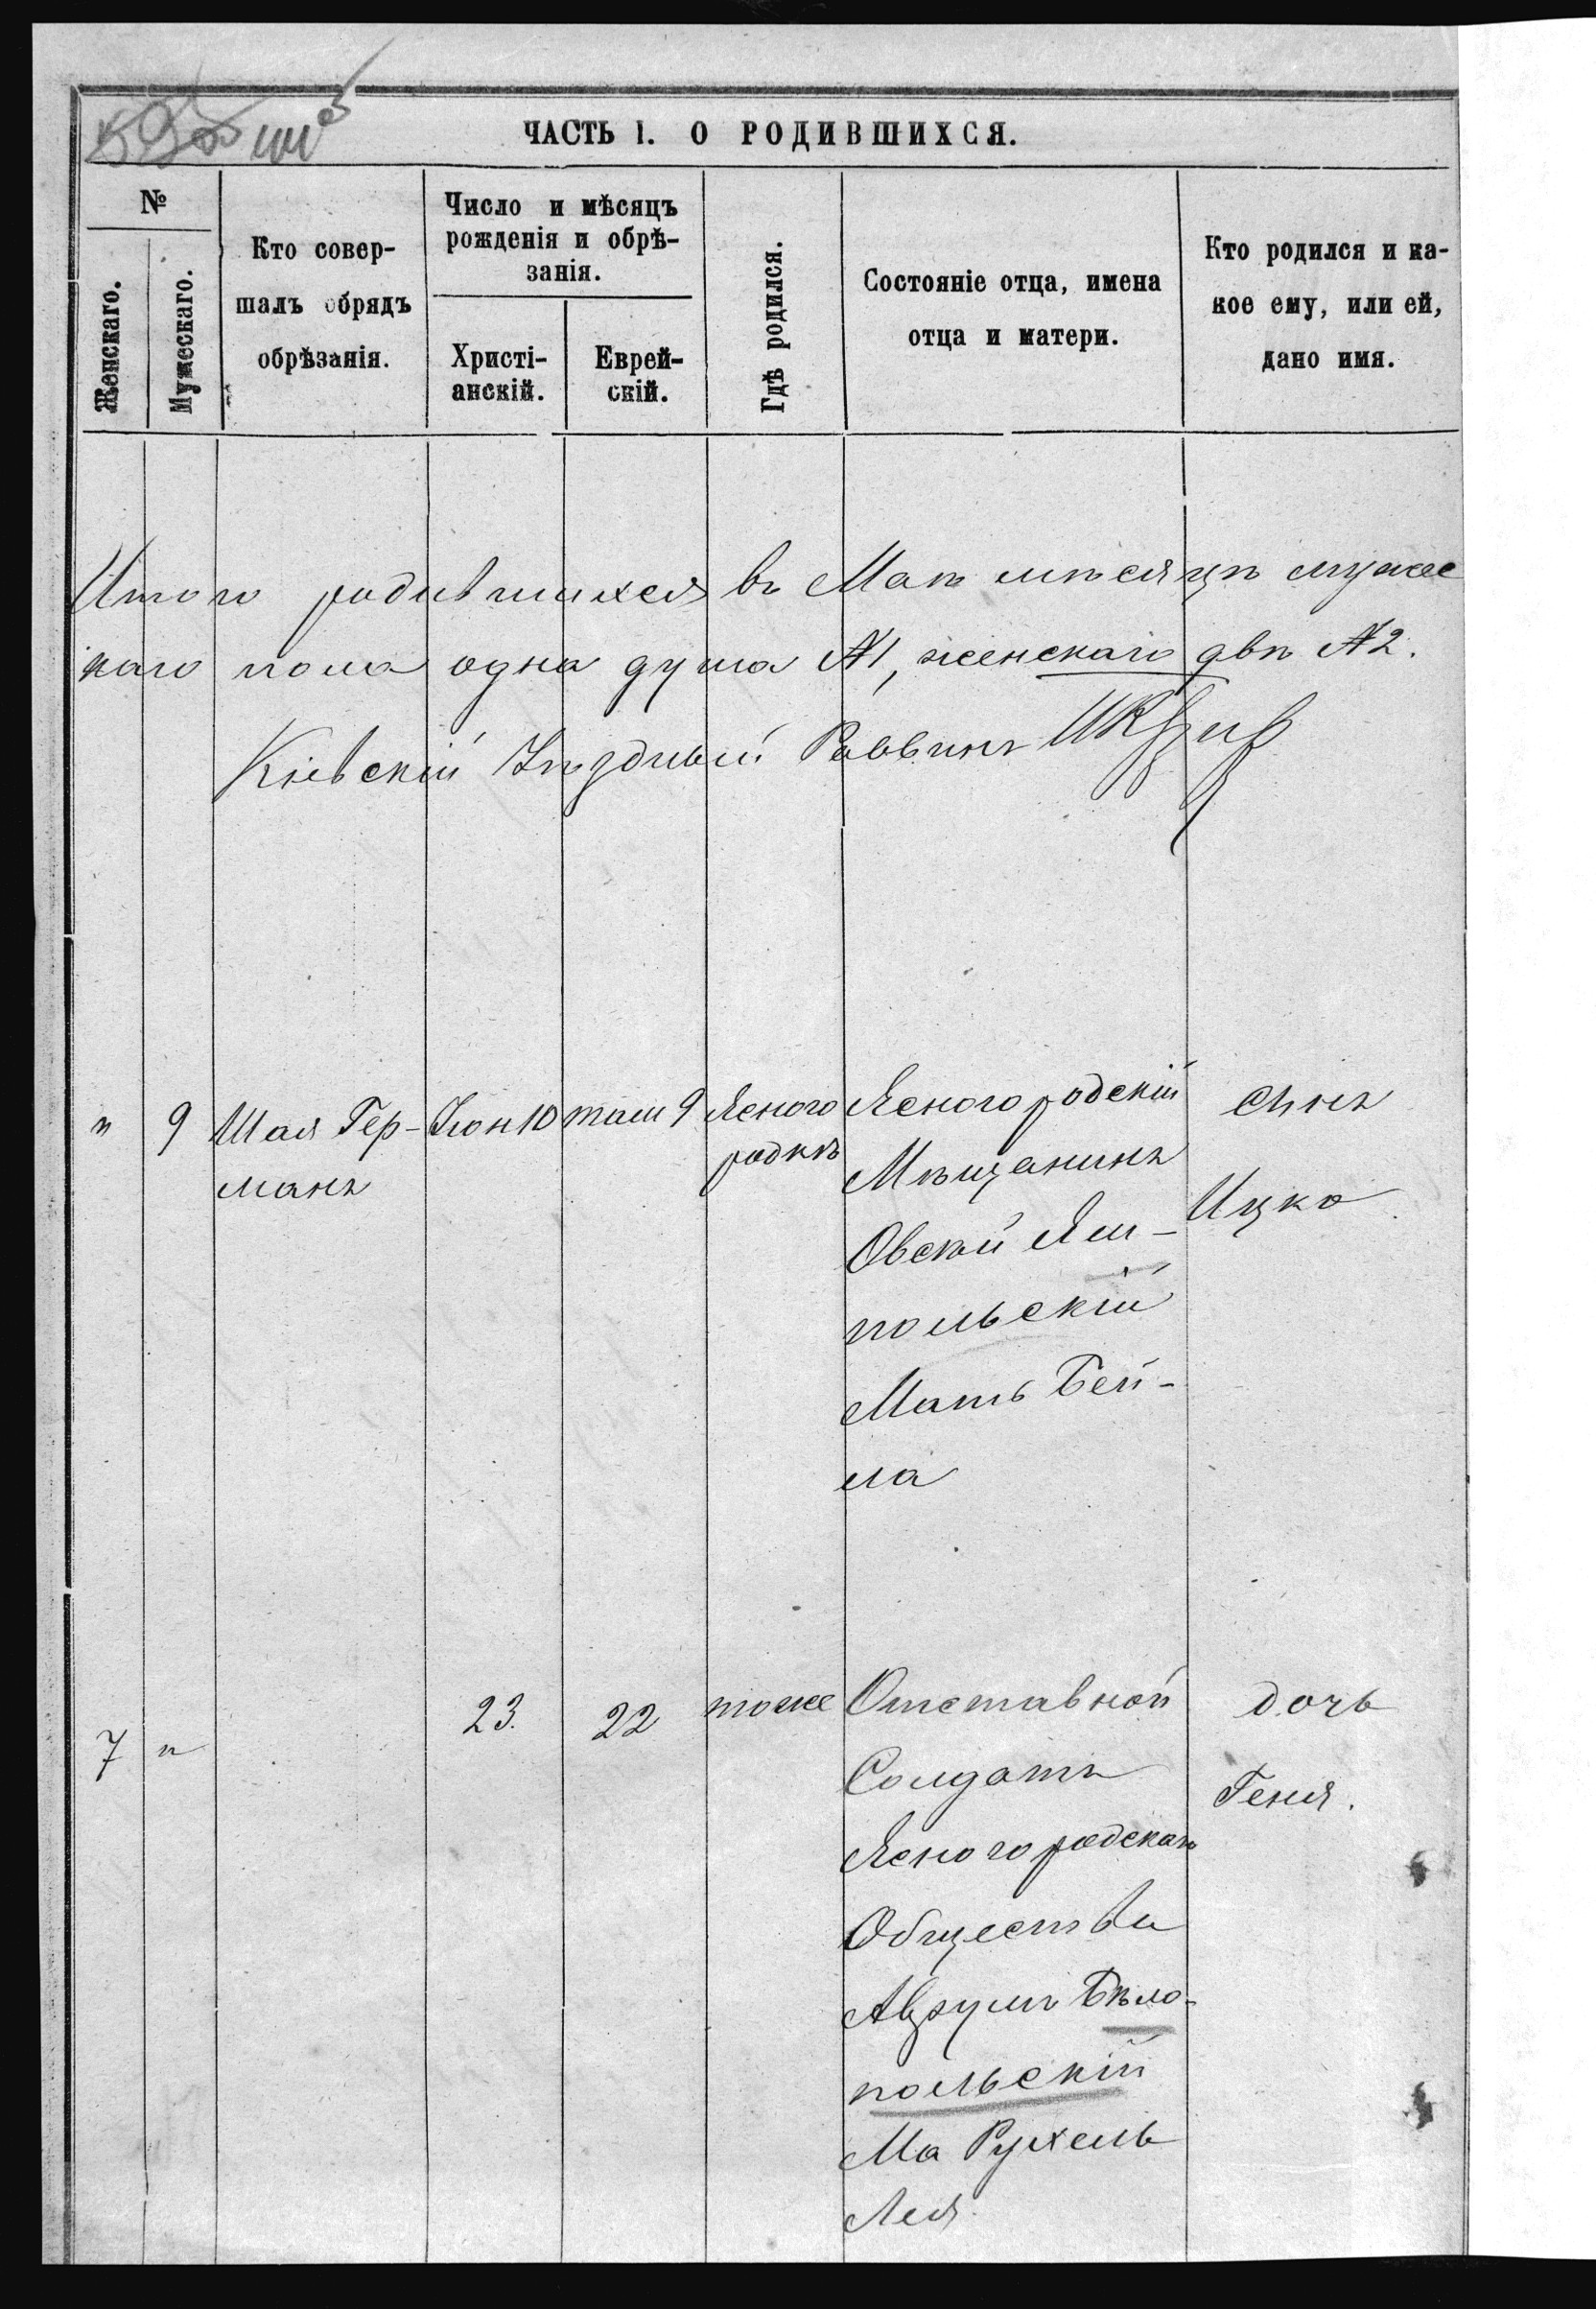 ЧАСТЬ I. О РОДИВШИХСЯ.
№
Женскаго.
Мужескаго.
Кто совер-
шалъ обрядъ
обрѣзанія.
Число и мѣсяцъ
рожденія и обрѣ-
занія.
Христі-
анскій.
Еврей-
скій.
Гдѣ родился.
Состояніе отца, имена
отца и матери.
Кто родился и ка-
кое ему, или ей,
дано имя.
Итого родившихся въ Маѣ мѣсяцѣ мужес
каго пола одна душа №1, женскаго двѣ №2.
Кіевскій Уѣздный Раввинъ
" 9 Шая Гер-
манъ
Іюн 10
там 9
Ясного
родкѣ
Ясногородскій
Мѣщанинъ
Овсей Ям-
польскій
Мать Бей-
ла
Сынъ
Ицко
7 "
23.
22
тоже
Отставной
Солдатъ
Ясногородскаго
Общества
Аврумъ Бѣло-
польскій
Ма Рухель
Лея
дочь
Геня.